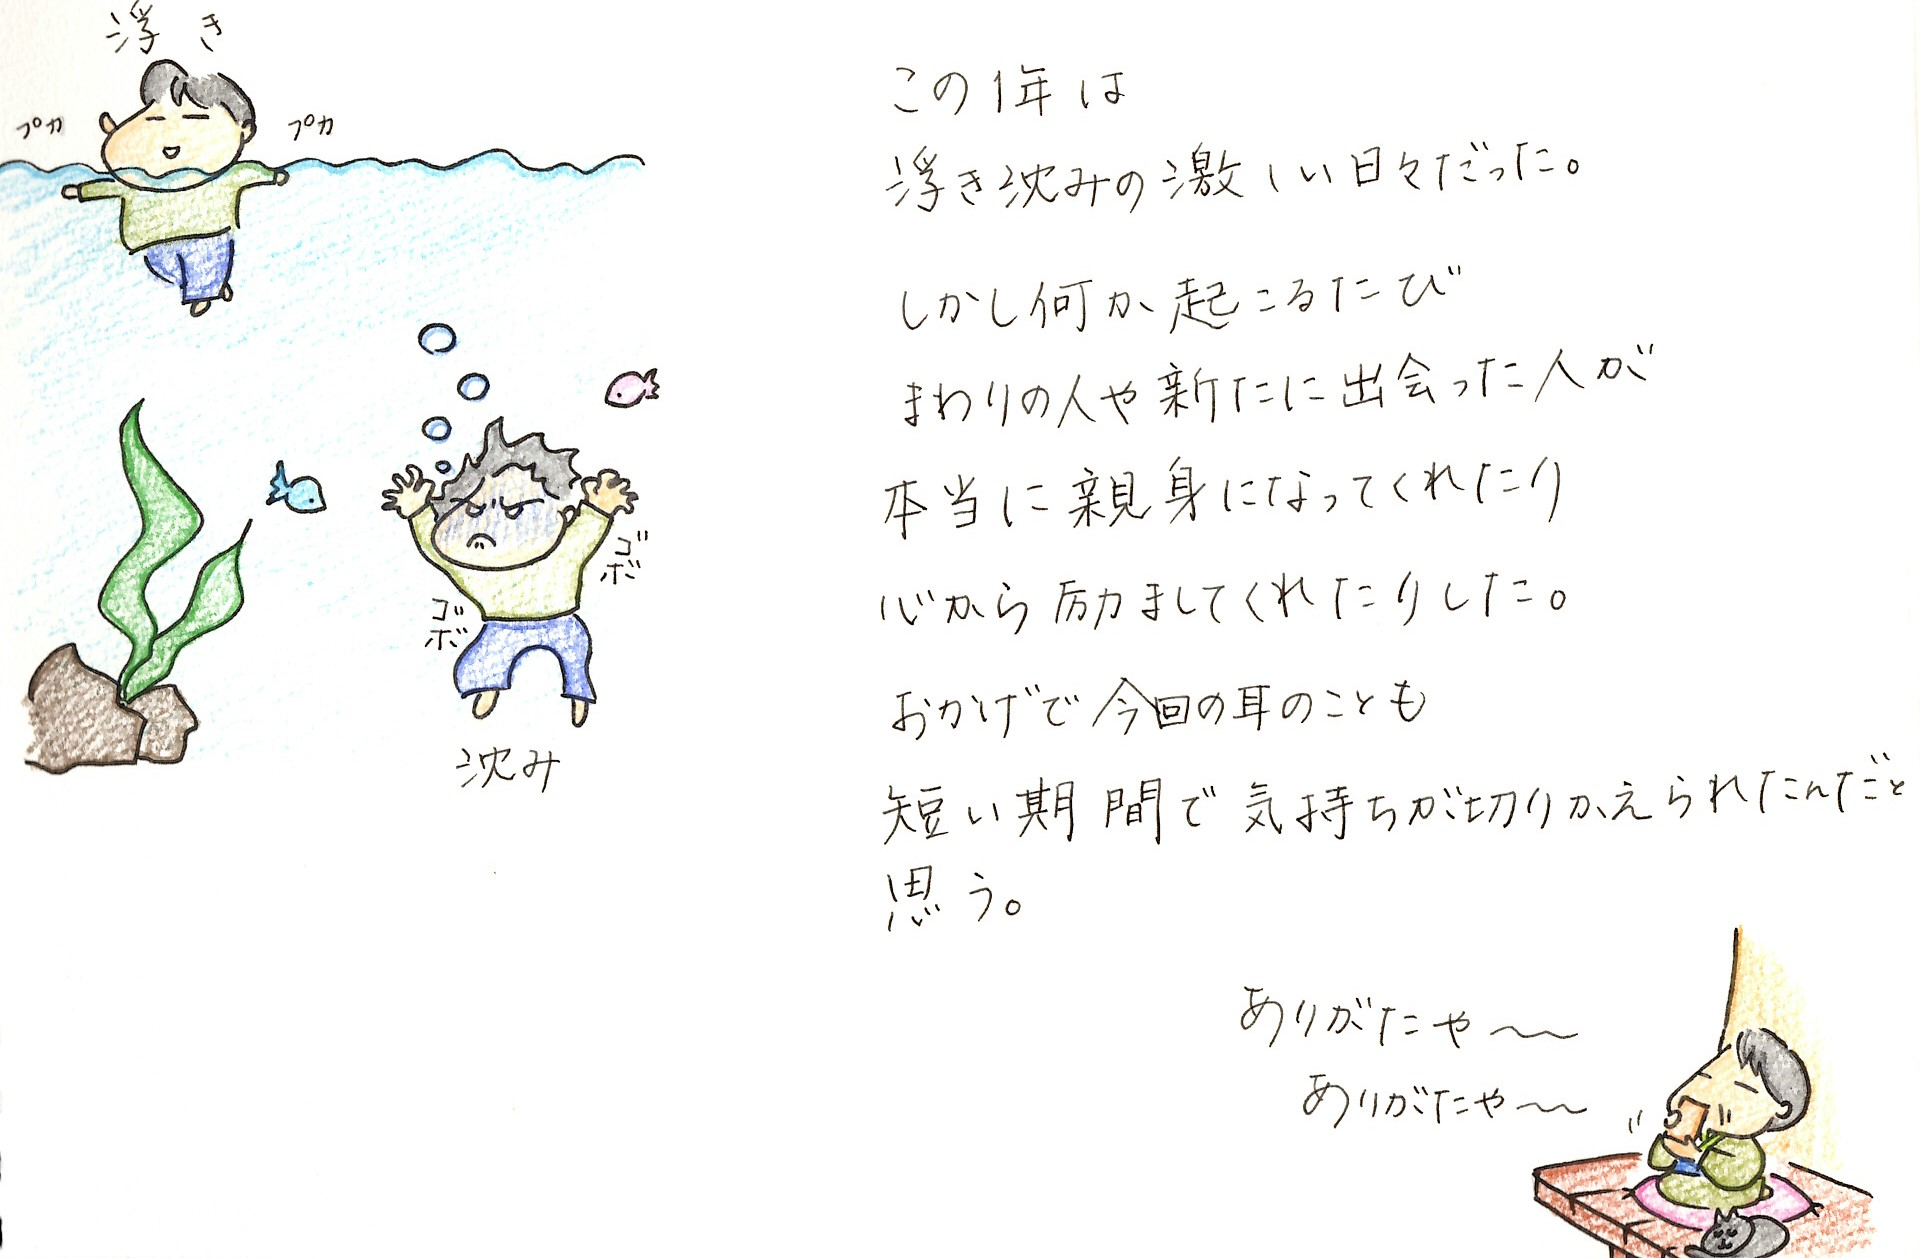 浮き
プカ
プカ
ゴボ
ゴボ
沈み
この1年は
浮き沈みの激しい日々だった。
しかし何か起こるたび
まわりの人や新たに出会った人が
本当に親身になってくれたり
心から励ましてくれたりした。
おかげで今回の耳のことも
短い期間で気持ちが切りかえられたんだと
思う。
ありがたや〜〜
ありがたや〜〜